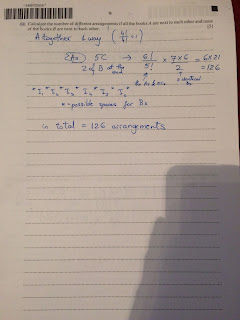 (iii) Calculate the number of different arrangements if all the books A are next to each other and none
of the books B are next to each other. [5]
A together 4 way ( 4!/4! = 1 )
5C → 6!/5! × 7×6/2 = 6×21
2 of B at the = 126
end
* I₁ * I₂ * I₃ * I₄ * I₅ * I₆ *
* = possible spaces for Bs
in total = 126 arrangements